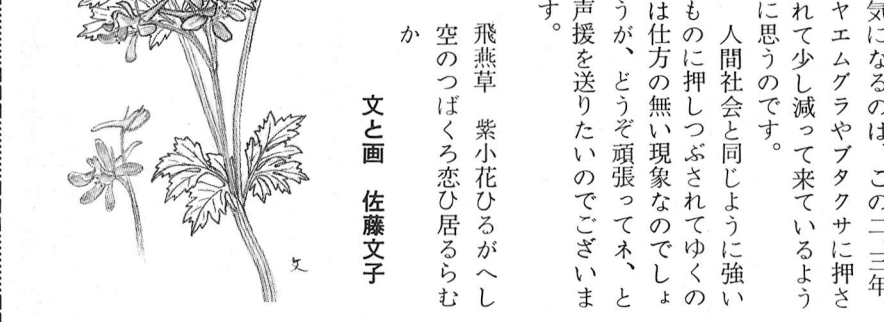 気になるのは、この二、三年
ヤエムグラやブタクサに押さ
れて少し減って来ているよう
に思うのです。
人間社会と同じように強い
ものに押しつぶされてゆくの
は仕方の無い現象なのでしょ
うが、どうぞ頑張ってネ、と
声援を送りたいのでございま
す。
飛燕草 紫小花ひるがへし
空のつばくろ恋ひ居るらむ
か
文と画 佐藤文子
文